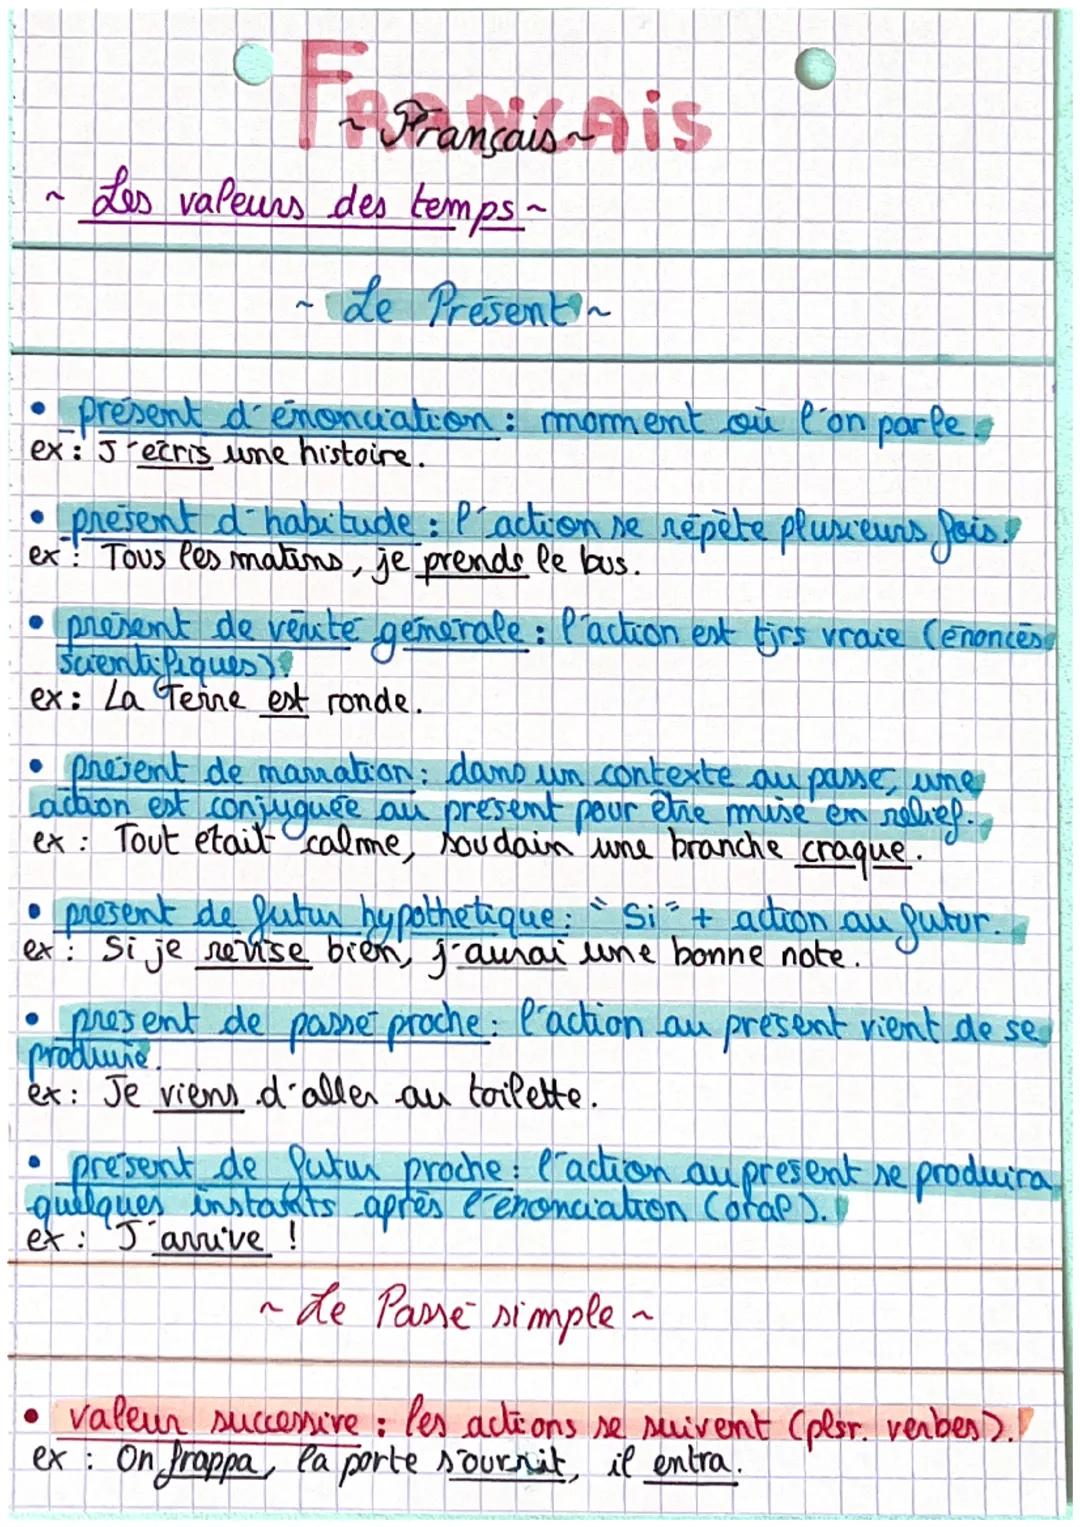 FRANÇAIS
~ Français ~
~ Les valeurs des temps ~
~ Le Présent ~
• présent d'énonciation : moment où l'on parle.
ex : J'écris une histoire.
• présent d'habitude : l'action se répète plusieurs fois.
ex : Tous les matins, je prends le bus.
• présent de vérité générale : l'action est tjrs vraie (énoncés
scientifiques).
ex : La Terre est ronde.
• présent de narration : dans un contexte au passé, une
action est conjuguée au présent pour être mise en relief.
ex : Tout était calme, soudain une branche craque.
• présent de futur hypothétique : "Si" + action au futur.
ex : Si je révise bien, j'aurai une bonne note.
• présent de passé proche : l'action au présent vient de se
produire.
ex : Je viens d'aller au toilette.
• présent de futur proche : l'action au présent se produira
quelques instants après l'énonciation (oral).
ex : J'arrive !
~ Le Passé simple ~
• valeur successive : les actions se suivent (plsr. verbes).
ex : On frappa, la porte s'ouvrit, il entra.